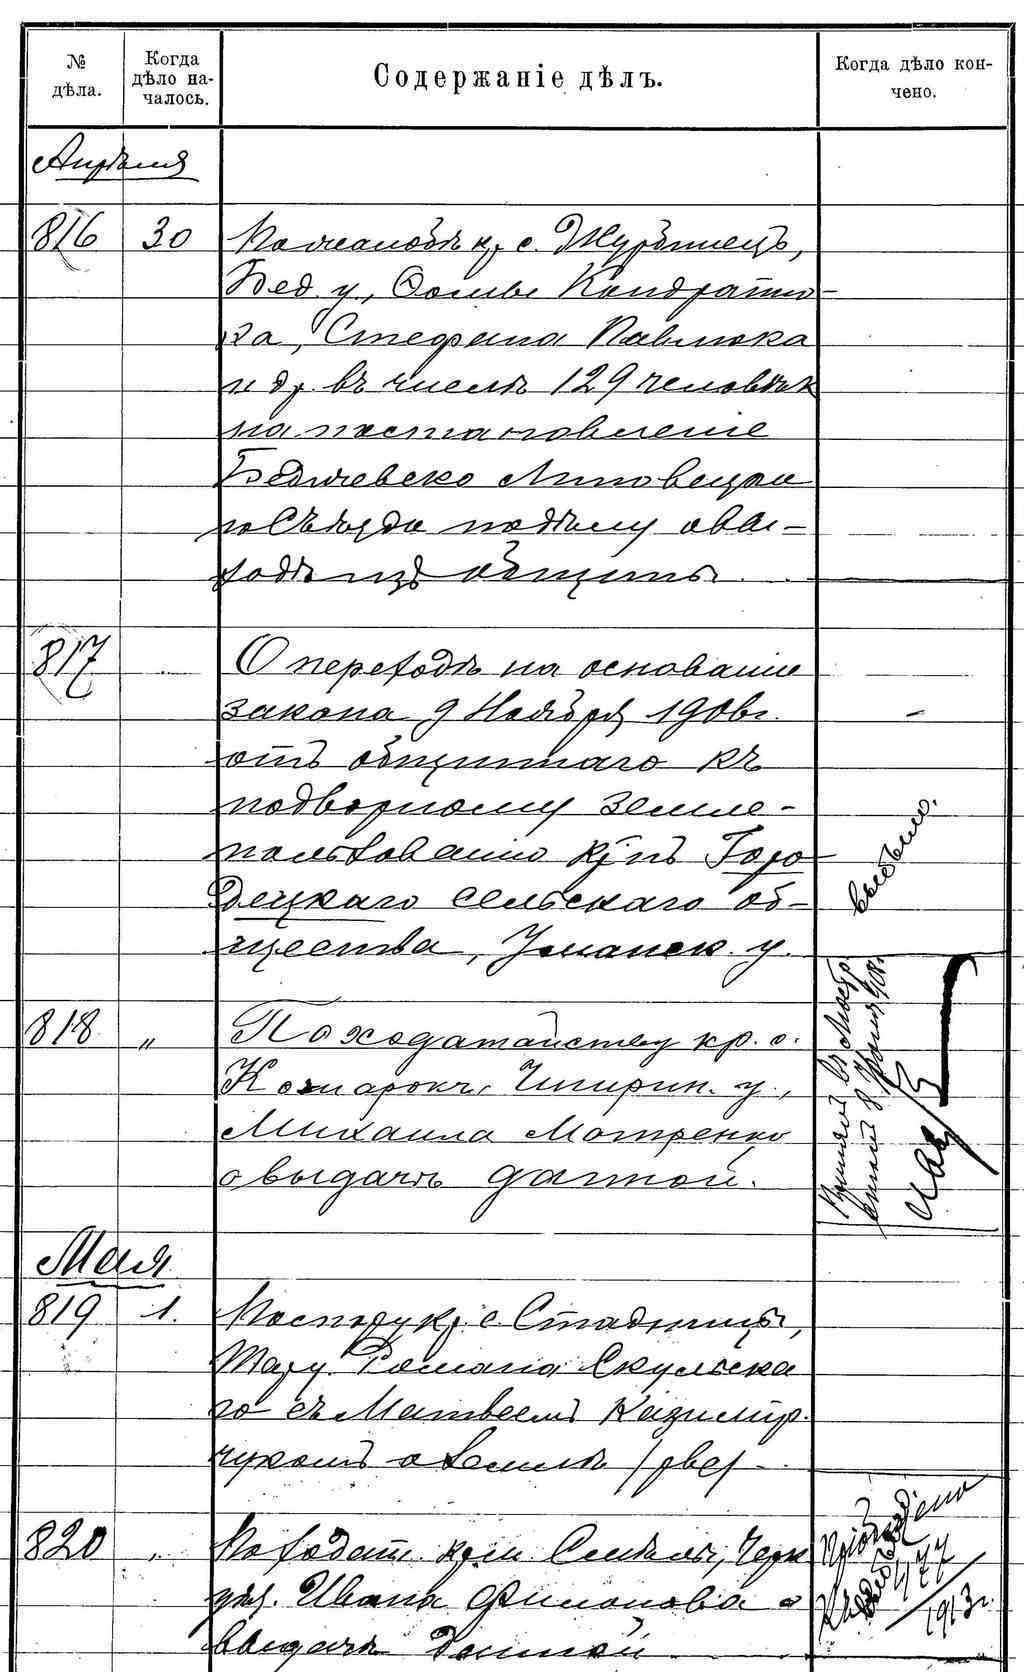 № дѣла.
Когда дѣло на-
чалось.
Содержаніе дѣлъ.
Когда дѣло кон-
чено.
Апрѣля
816 30 По жалобѣ кр. с. Журбинецъ,
Бед. у., Фомы Кондратю-
ка, Стефана Павлюка
и др. въ числѣ 129 человѣк
на постановленіе
Бедичевско Липовецка
го Съѣзда по дѣлу о вы-
ходѣ изъ общины.
817 О переходѣ на основаніи
закона 9 Ноября 1906 г.
отъ общиннаго къ
подворному земле-
пользованію кр-нъ Горо-
децкаго сельскаго об-
щества, Уманск. у.
выбыло.
818 " По ходатайству кр. с.
Комаровки, Чигирин. у.,
Михаила Мотренко
о выдачѣ данной.
819 Мая
1. По спору кр. с. Стадницы,
Тар. у. Романа Скульска
го съ Матвеемъ Казимір-
чукомъ о землѣ /рве/
820 " По ходат. кр. м. Смѣлы, Черк
уѣз. Ивана Филонова о
выдачѣ данной
Пріобщено
477
1913 г.